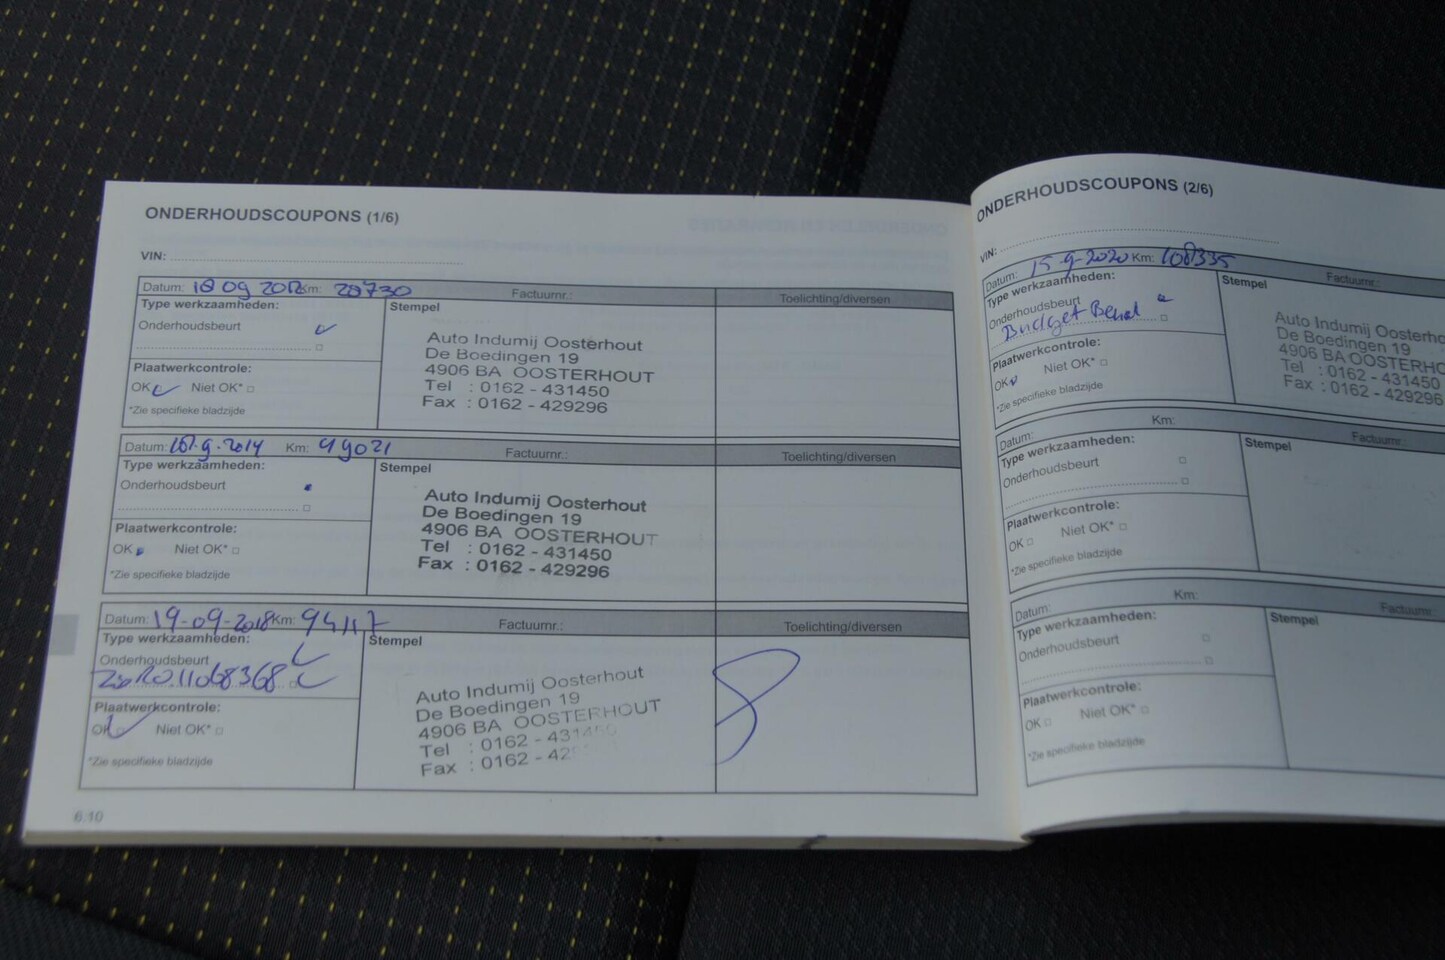 ONDERHOUDSCOUPONS (1/6)
VIN:
Datum: 18 09 2012 Km: 28730 Factuurnr.: Toelichting/diversen
Type werkzaamheden: Stempel
Onderhoudsbeurt
Auto Indumij Oosterhout
De Boedingen 19
4906 BA OOSTERHOUT
Tel : 0162 - 431450
Fax : 0162 - 429296
Plaatwerkcontrole:
OK Niet OK*
*Zie specifieke bladzijde
Datum: 9-2014 Km: 49021 Factuurnr.: Toelichting/diversen
Type werkzaamheden: Stempel
Onderhoudsbeurt
Auto Indumij Oosterhout
De Boedingen 19
4906 BA OOSTERHOUT
Tel : 0162 - 431450
Fax : 0162 - 429296
Plaatwerkcontrole:
OK Niet OK*
*Zie specifieke bladzijde
Datum: 19-09-2018 Km: 94117 Factuurnr.: Toelichting/diversen
Type werkzaamheden: Stempel
Onderhoudsbeurt
Auto Indumij Oosterhout
De Boedingen 19
4906 BA OOSTERHOUT
Tel : 0162 - 431450
Fax : 0162 - 42
Plaatwerkcontrole:
OK Niet OK*
*Zie specifieke bladzijde
6.10
ONDERHOUDSCOUPONS (2/6)
VIN:
Datum: 15-9-2020 Km: 108335 Factuurnr.:
Type werkzaamheden: Stempel
Onderhoudsbeurt
Budget Beurt
Auto Indumij Oosterho
De Boedingen 19
4906 BA OOSTERHO
Tel : 0162 - 431450
Fax : 0162 - 429296
Plaatwerkcontrole:
OK Niet OK*
*Zie specifieke bladzijde
Datum: Km: Factuurnr.:
Type werkzaamheden: Stempel
Onderhoudsbeurt
Plaatwerkcontrole:
OK Niet OK*
*Zie specifieke bladzijde
Datum: Km: Factuurnr.:
Type werkzaamheden: Stempel
Onderhoudsbeurt
Plaatwerkcontrole:
OK Niet OK*
*Zie specifieke bladzijde